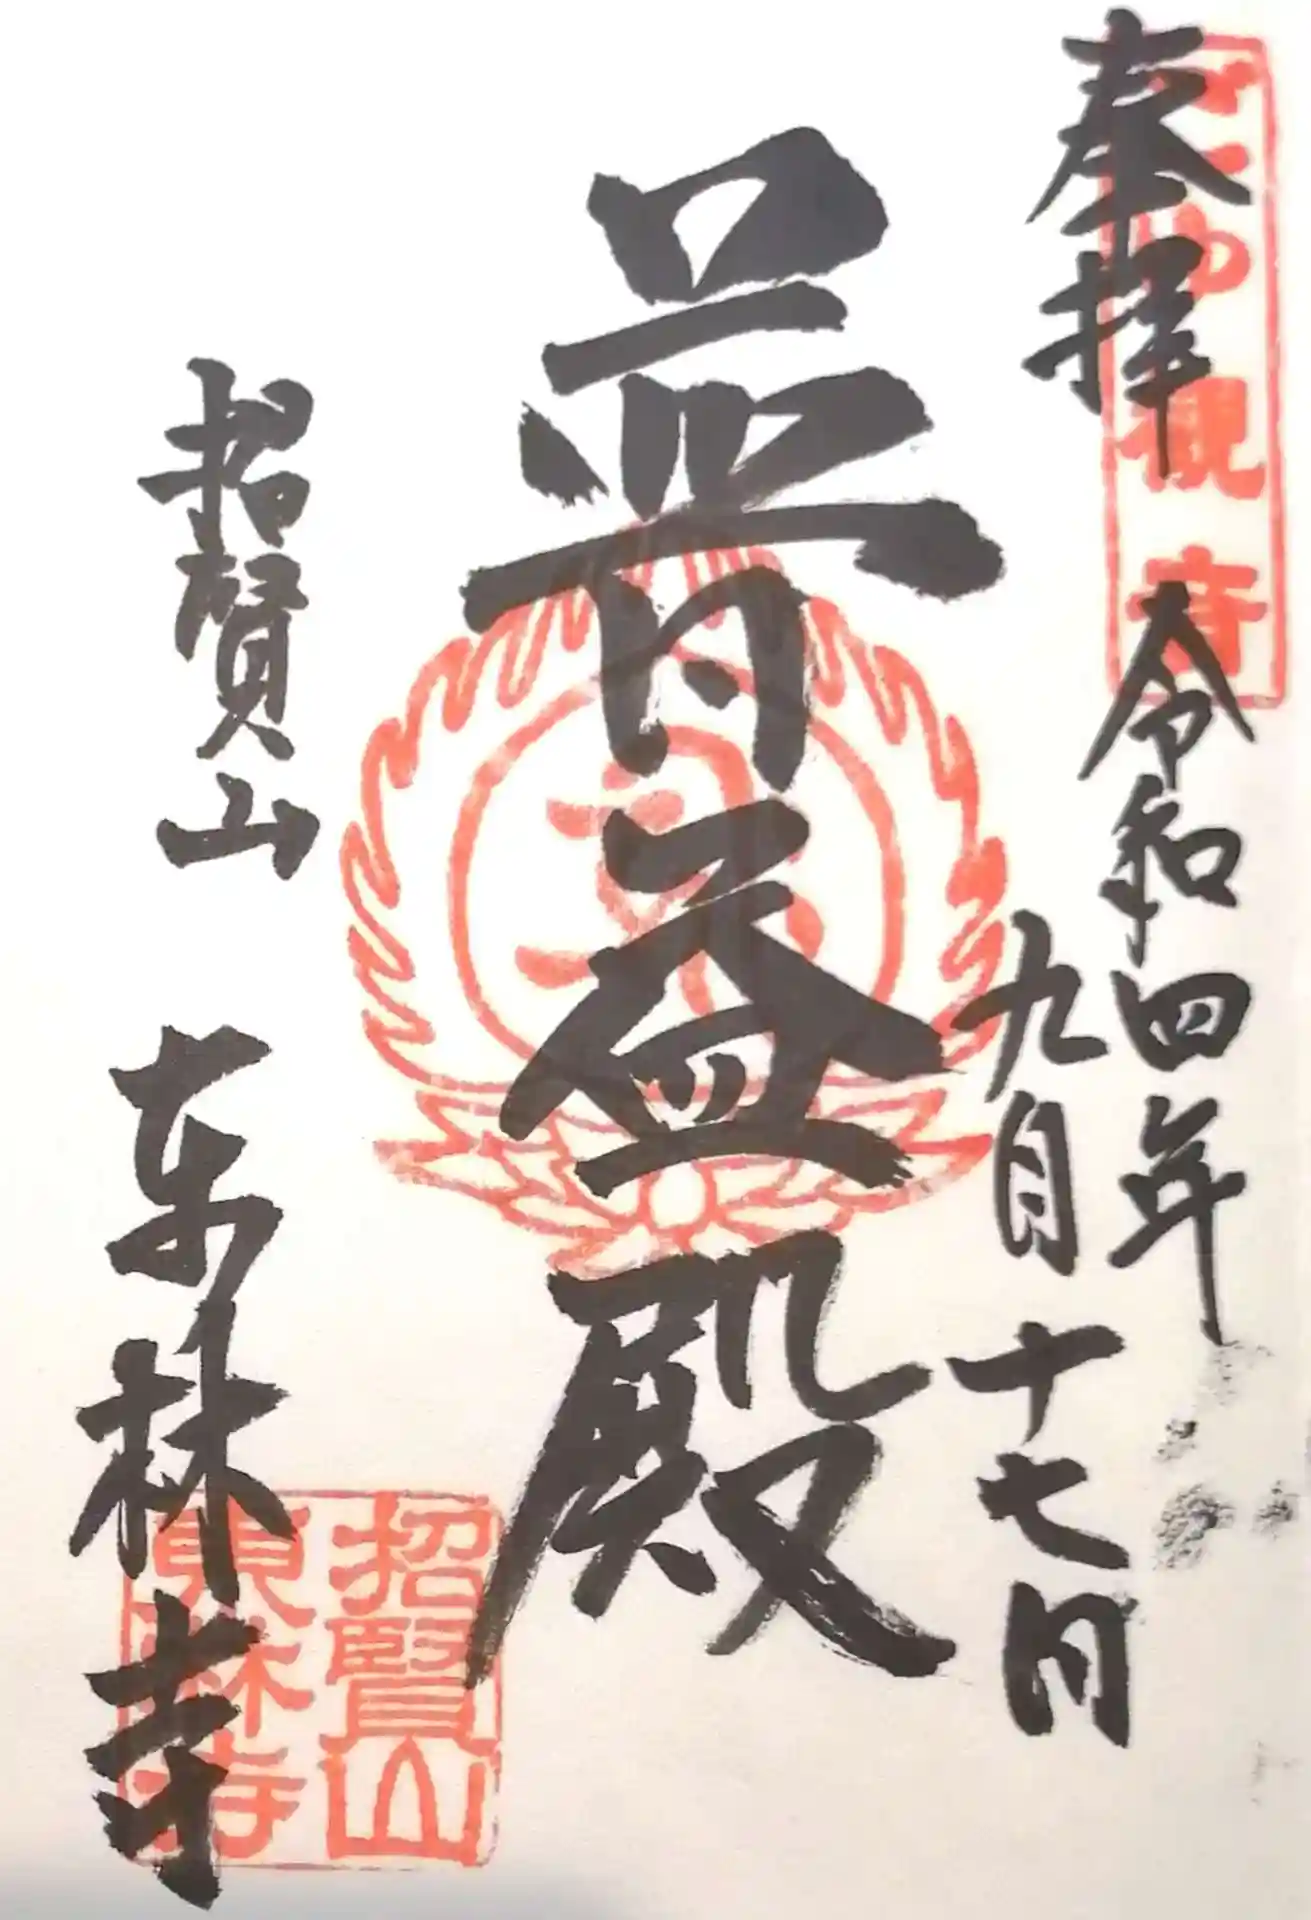 奉拝
観音
令和四年
九月十七日
普益殿
招賢山
東林寺
招賢山
東林寺